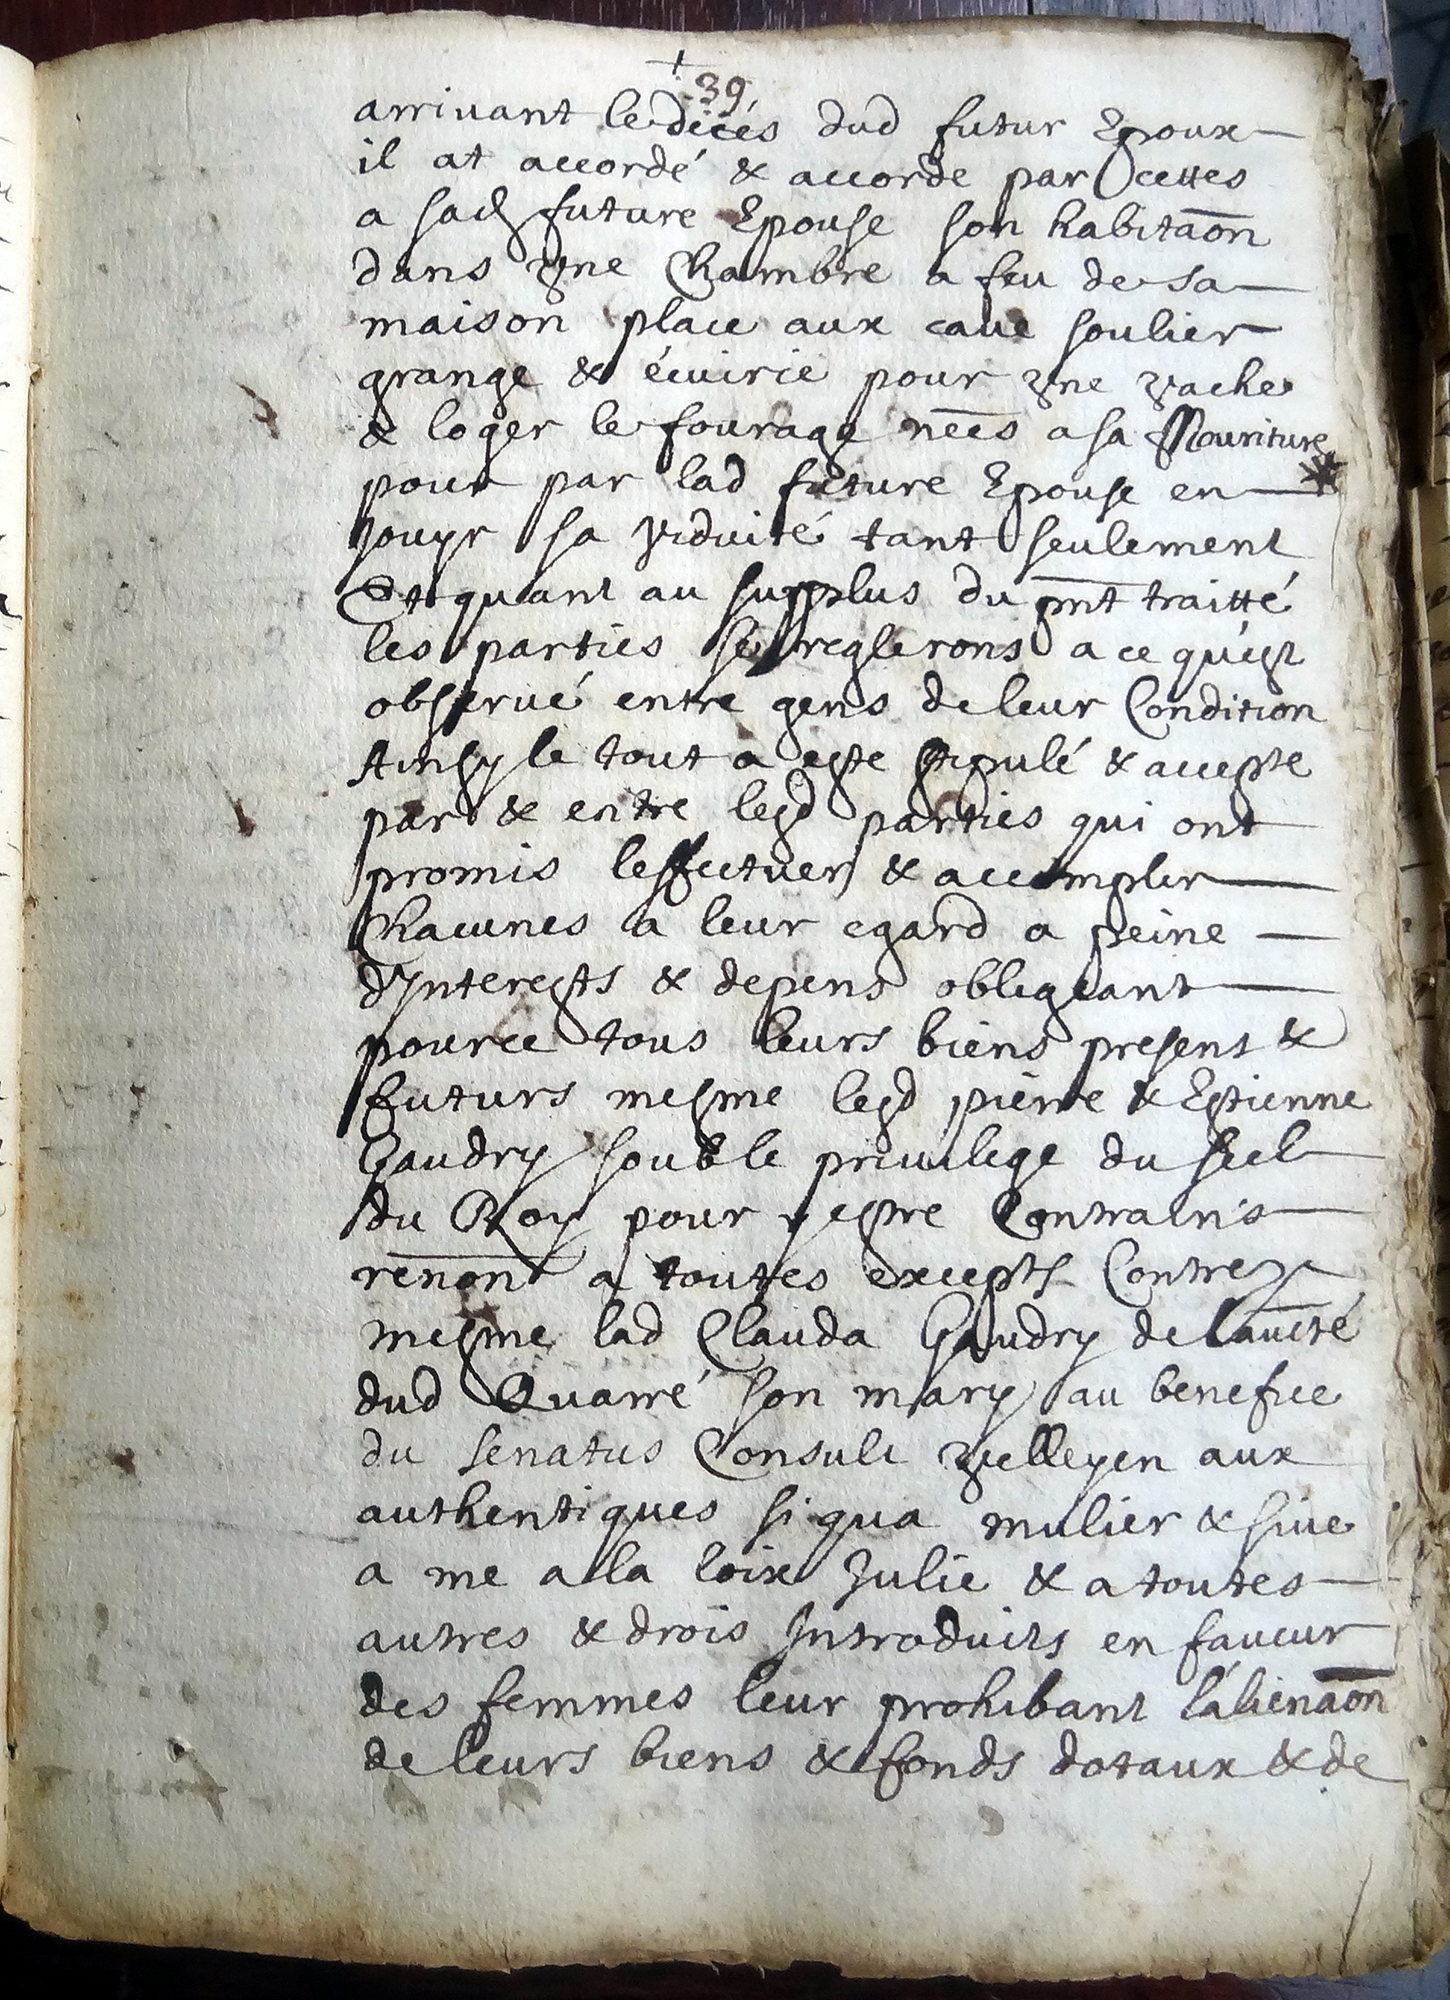 39
arrivant le décés dud futur Epoux
il at accordé & accorde par cettes
a sad future Epouse son habitaōn
dans vne Chambre a feu de sa
maison place aux caue soulier
grange & écuirie pour vne vache
& loger le fourage nēcs a sa Nouriture
pour par lad future Epouse en
jouyr sa viduité tant seulement
Et quant au supplus du pn̄t traitté
les parties se reglerons a ce qu'est
obserué entre gens de leur Condition
Ainsy le tout a este stipulé & accepte
par & entre lesd parties qui ont
promis leffectuer & accomplir
Chacunes a leur egard a peine
d'Interests & depens obligeant
pource tous leurs biens present &
futurs mesme lesd pierre & Estienne
Gaudry soub le priuilege du seel
du Roy pour y estre Contrains
renōnt a toutes excepts Contrex
mesme lad Clauda Gaudry de Lauc̄té
dud Quarré son mary au benefice
du Senatus Consult velleyen aux
authentiques si qua mulier & siue
a me a la loix Julie & a toutes
autres & drois Introduits en faueur
des femmes leur prohibant l'alienaōn
de leurs biens & fonds dotaux & de